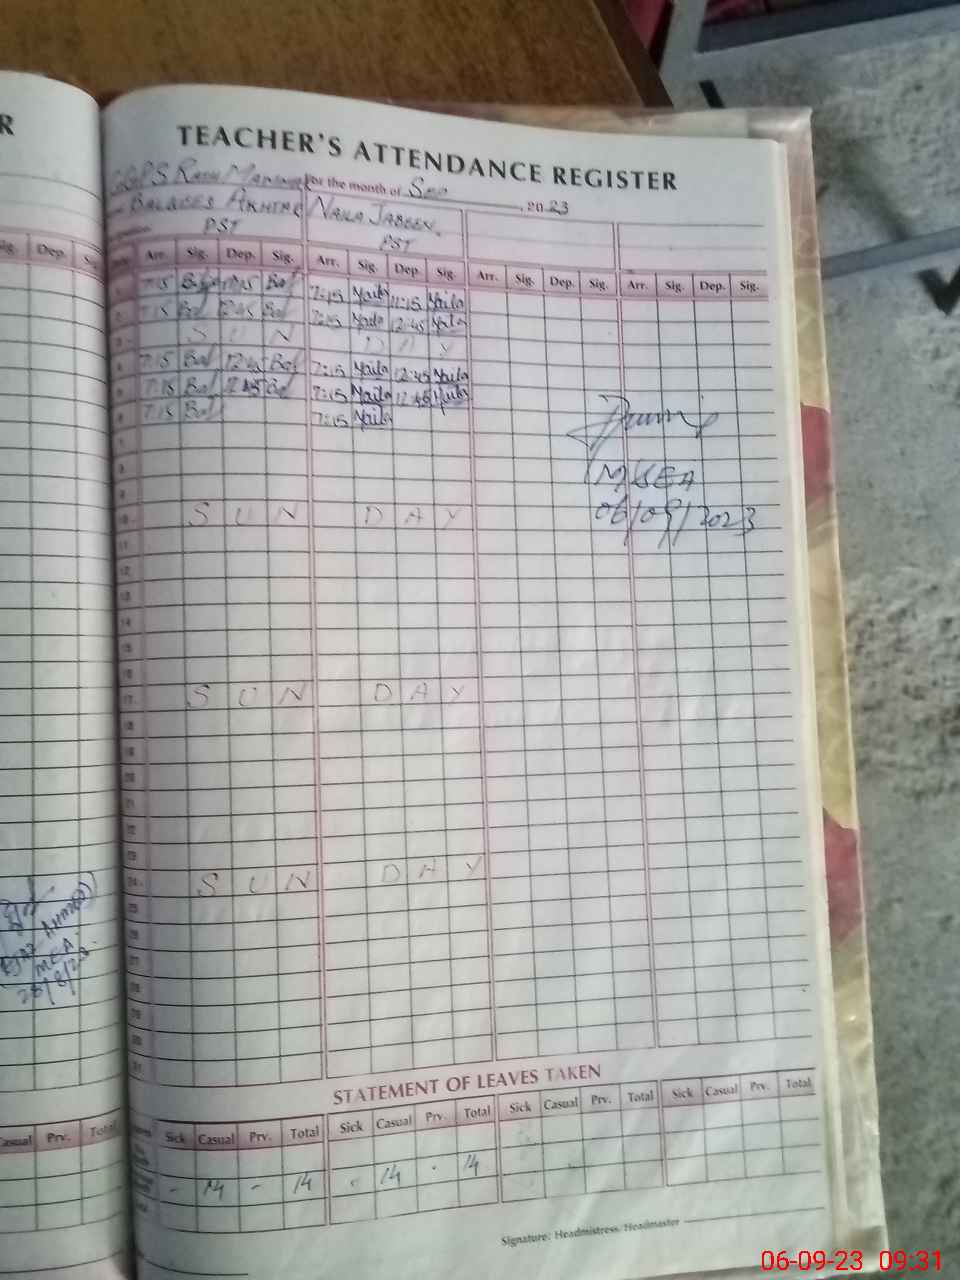 R
TEACHER'S ATTENDANCE REGISTER
GGPS for the month of Sep, 2023
BALQEES AKHTAR NAILA JABEEN.
PST PST
Sig. Dep. Arr. Sig. Dep. Sig. Arr. Sig. Dep. Sig. Arr. Sig. Dep. Sig. Arr. Sig. Dep. Sig.
7:15 Bal 11:15 Bal 7:15 Naila 11:15 Naila
7:15 Bal 12:45 Bal 7:15 Naila 12:45 Naila
S U N D A Y
7:15 Bal 12:45 Bal 7:15 Naila 12:45 Naila
7:15 Bal 12:45 Bal 7:15 Naila 12:45 Naila
7:15 Bal 7:15 Naila
7
8
9
MEA
10 S U N D A Y
06/09/2023
11
12
13
14
15
16
17 S U N D A Y
18
19
20
21
22
23
24 S U N D A Y
25
26
27
28
29
30
31
Ahmed
MEA
28/8/23
STATEMENT OF LEAVES TAKEN
Casual Prv. Total Sick Casual Prv. Total Sick Casual Prv. Total Sick Casual Prv. Total Sick Casual Prv. Total
- 14 - 14 - 14 - 14
Signature: Headmistress/Headmaster
06-09-23 09:31